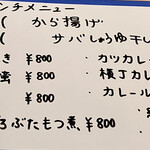 ンチメニュー
( から揚げ
( サバしょうゆ干し
き ¥800 ・カツカレー
蜜 ¥800 ・横丁カレ
¥800 ・カレール
ろぶたもつ煮、¥800